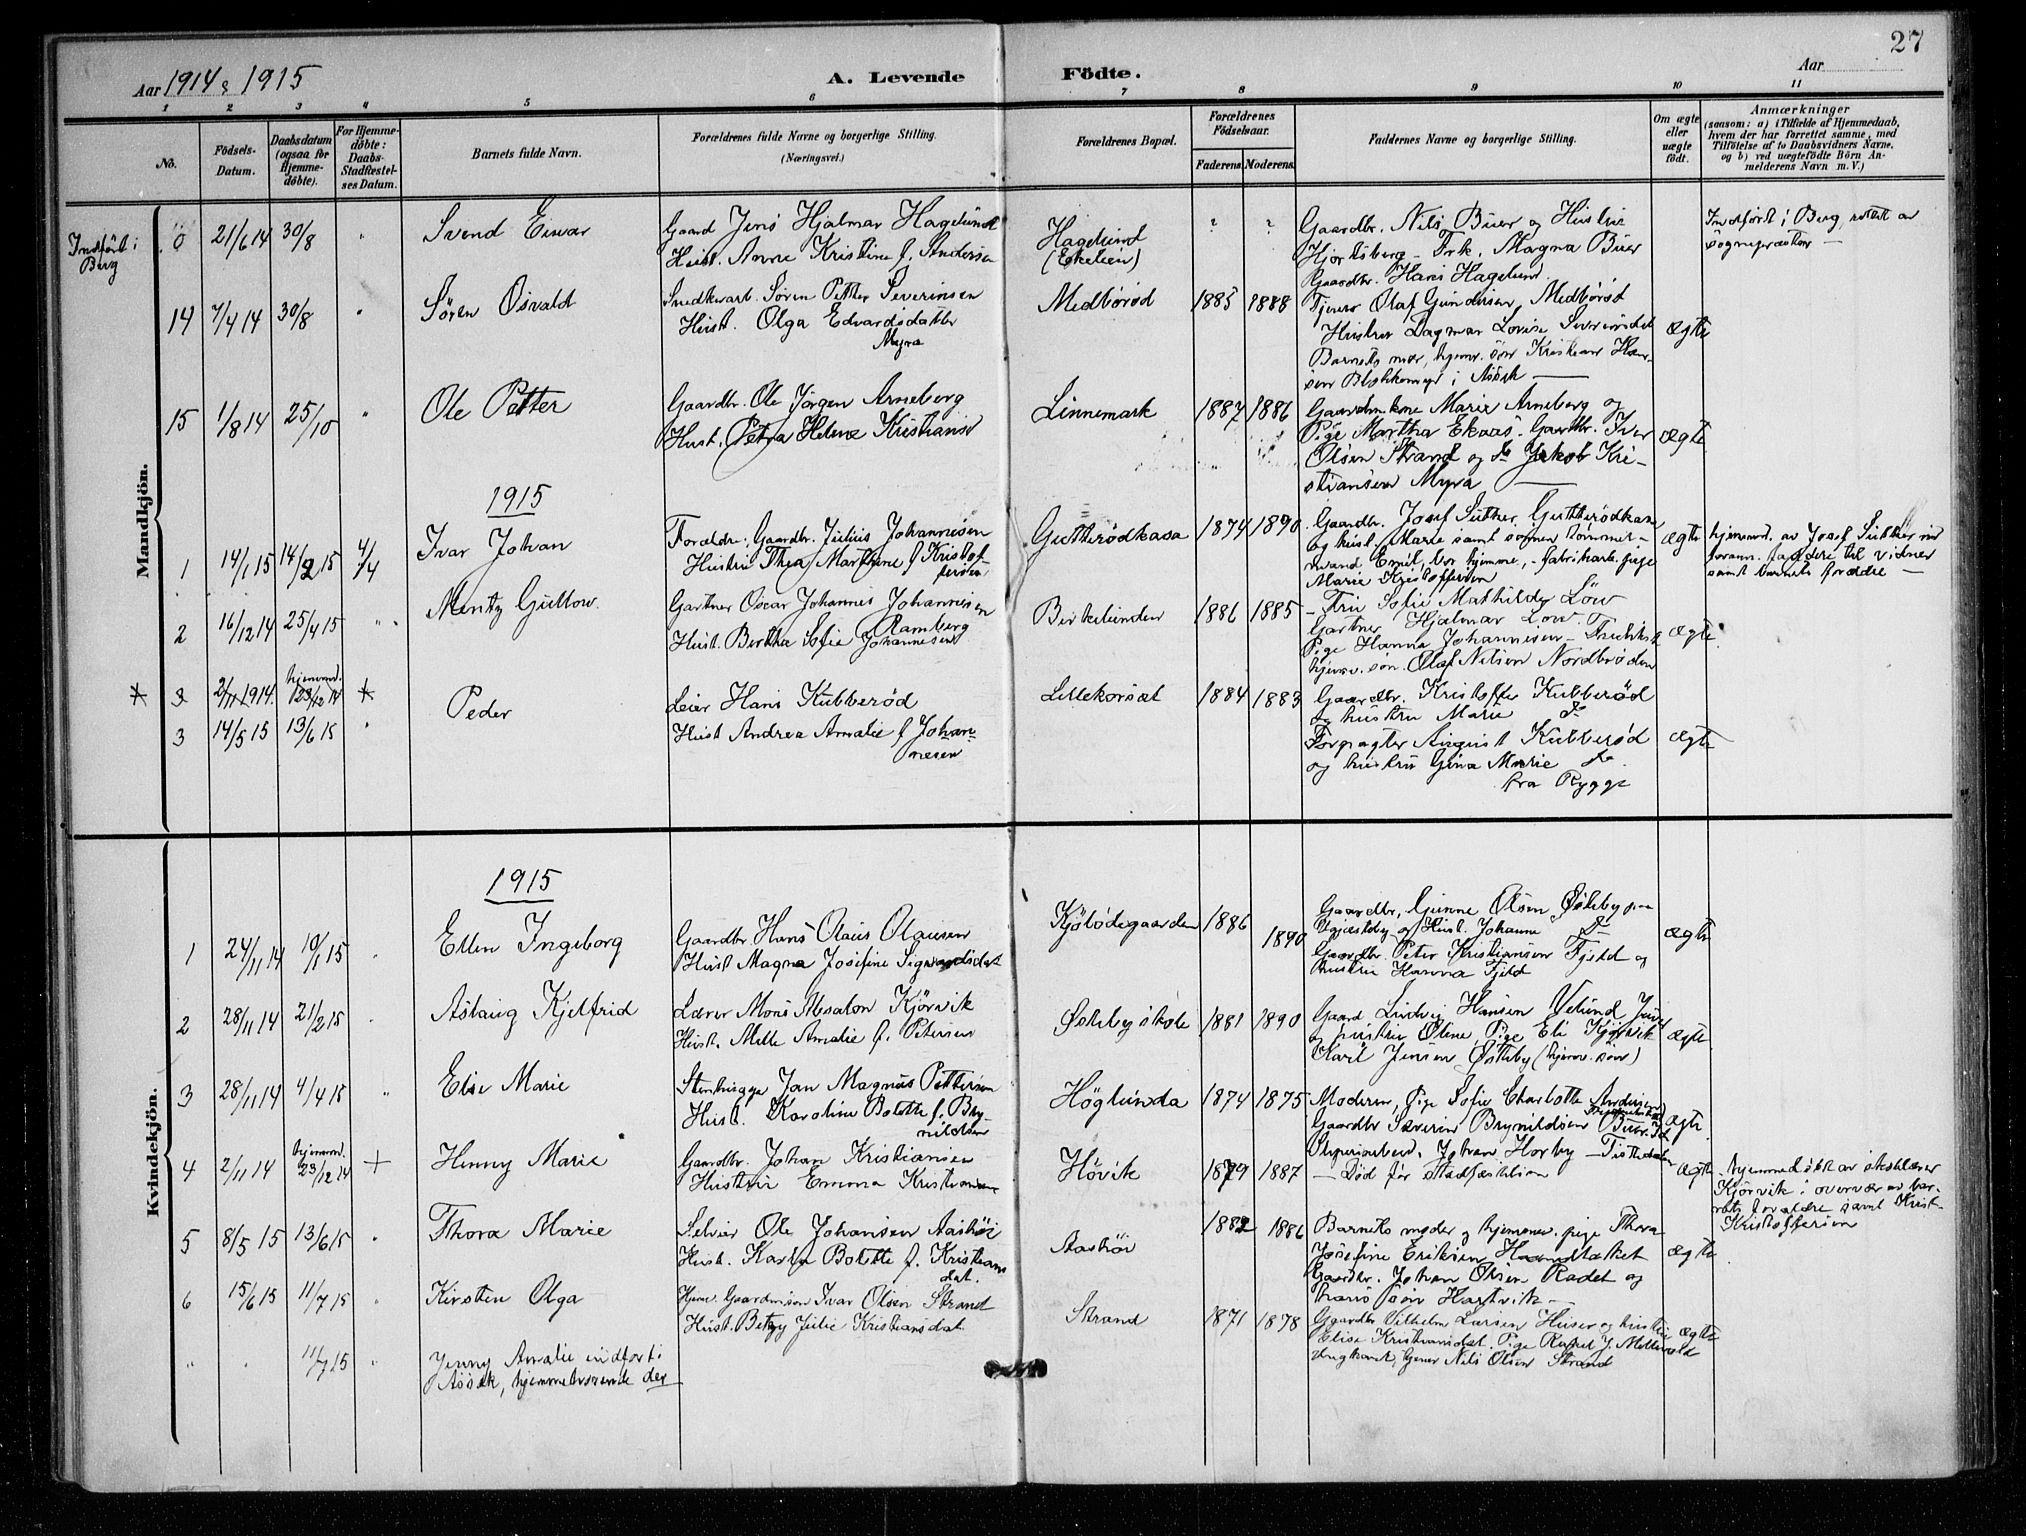 27
Aar 1914 & 1915
A. Levende
Födte.
Aar
1 2 3 4 5 6 7 8 9 10 11
No.
Födsels-Datum.
Daabsdatum (ogsaa for Hjemme-döbte).
For Hjemme-döbte: Daabs-Stadfæstel-ses Datum.
Barnets fulde Navn.
Forældrenes fulde Navne og borgerlige Stilling.
(Næringsvei.)
Forældrenes Bopæl.
Forældrenes Födselsaar.
Faderens. Moderens.
Faddernes Navne og borgerlige Stilling.
Om ægte eller uægte födt.
Anmærkninger
(saasom: a) i Tilfælde af Hjemmedaab, hvem der har forrettet samme, med Tilföielse af to Daabsvidners Navne, og b) ved uægtefödte Börn An-melderens Navn m. V.)
Mandkjön.
Indført i Berg
0 21/6 14 30/8 Svend Eivar
Gaard Jens Hjalmar Hagelund
Hust. Anne Kristine f. Andersen
Hagelund (Ekelien)
? ?
Gaardbr. Nils Buer og Hustru
Hjortsberg - Frk. Magna Buer
Gaardbr. Hans Hagelund
Indført i Berg, av
sognepræsten —
14 7/4 14 30/8 Sören Osvald
Sören Petter Severinsen
Hust. Olga Edvardsdatter
Myra
Medböröd 1885 1888
Tjener Olaf Gundersen, Medböröd
Hustru Dagmar Lovise
Barnets mor, hjemv. sön Kristian Han-
sen i Asak —
ægte
15 1/8 14 25/10 Ole Petter
Gaardbr. Ole Jörgen Arneberg
Hust. Petra Helene Kristians
Linnemark 1887 1886
Marie Arneberg og
Pige Martha Ekaas. Gaardbr. Iver
Olsen Strand og Jakob Kri-
stiansen Myra —
ægte
1915
1 14/1 15 14/2 15 4/4 Ivar Johan
Forældre: Gaardbr. Julius Johannesen
Hustru Thea Marthine f. Kristof
fersen
Gutterödkasa 1874 1890
Gaardbr. Josef Sutter, Gutterödkasa
og hust. Marie samt sönnen tömmer-
mand Emil, bor hjemme, - fabrikarb. pige
Marie Kristoffersen
ægte
hjemmd. av Josef Sutter med
foran. faddere til vidner
samt barnets forældre —
2 16/12 14 25/4 15 Mentz Guttow.
Gartner Oscar Johannes Johannesen
Ramberg
Hust. Bertha Sofie Johannesen
Birkelunden 1886 1885
- Fru Sofie Mathilde Löw
Gartner Hjalmar Löw.
Pige Hanna Johannesen -
hjemv. sön. Olaf Nilsen Nordbröden
ægte
3 2/11 1914. hjemmd. 23/12 14
3 14/5 15 13/6 15 Peder
Leier Hans Kubberöd
Hust Andrea Amalie f. Johan-
nesen
Lillekorsæt 1884 1883
Gaardbr. Kristoffer Kubberöd
og hustru Marie do
Forpagter August Kubberöd
og hustru Gina Marie do.
fra Rygge
ægte
Kvindekjön.
1915
1 24/11 14 10/1 15 Ellen Ingeborg
Gaardbr Hans Olaus Olausen
Hust Magna Josefine Sigvardsdat
Kjöbödegaarden 1886 1890
Gaardbr. Gunne Olsen
og Hust. Johanne do
Gaardbr. Peter Kristiansen Fjeld og
hustru Hanna Fjeld
ægte
2 28/11 14 21/2 15 Aslaug Kjelfrid
Lærer Mons Kjörvik
Hust. Mille Amalie f. Petersen
Østeby skole 1881 1890
Gaard Ludvig Hansen
og hustru Oline, Pige Eli Kjörvik
Karl Jensen Østeby (hjemv. sön)
ægte
3 28/11 14 4/4 15 Else Marie
Stenhugger Jan Magnus Pettersen
Hust. Karoline Bolette f. Bry
nildsen
Höglunda 1874 1875
Moderen, Pige Sofie Charlotte Andersen
Gaardbr Severin Brynildsen Buer. Id
Johan Horby - Tistedalen
ægte
4 2/11 14 hjemmd. 23/12 14 Henny Marie
Gaardbr. Johan Kristiansen
Hustru Emma Kristiansen
Hövik 1879 1887
— Död för stadfæstelsen
ægte
hjemmedöbt av skolelærer
Kjörvik i overvær av bar-
nets forældre samt Krist-
Kristoffersen
5 8/5 15 13/6 15 Thora Marie
Selveier Ole Johansen Aashöi
Hust. Karen Bolette f. Kristians
dat.
Aashöi 1882 1886
Barnets moder og hjemmev. pige Thora
Josefine Eriksen
Gaardbr. Johan Olsen Rödet og
hans sön Hartvik -
ægte
6 15/6 15 11/7 15 Kirsten Olga
Hjem. Gaardmsön Ivar Olsen Strand
Hust. Betzy Julie Kristiansdat
Strand 1871 1878
Gaardbr Vilhelm Larsen Huser og hustru
Elise Kristiansdat. Pige
Nils Olsen Strand
ægte
11/7 15 Jenny Amalie indfört i
Asak, hjemmehörende der